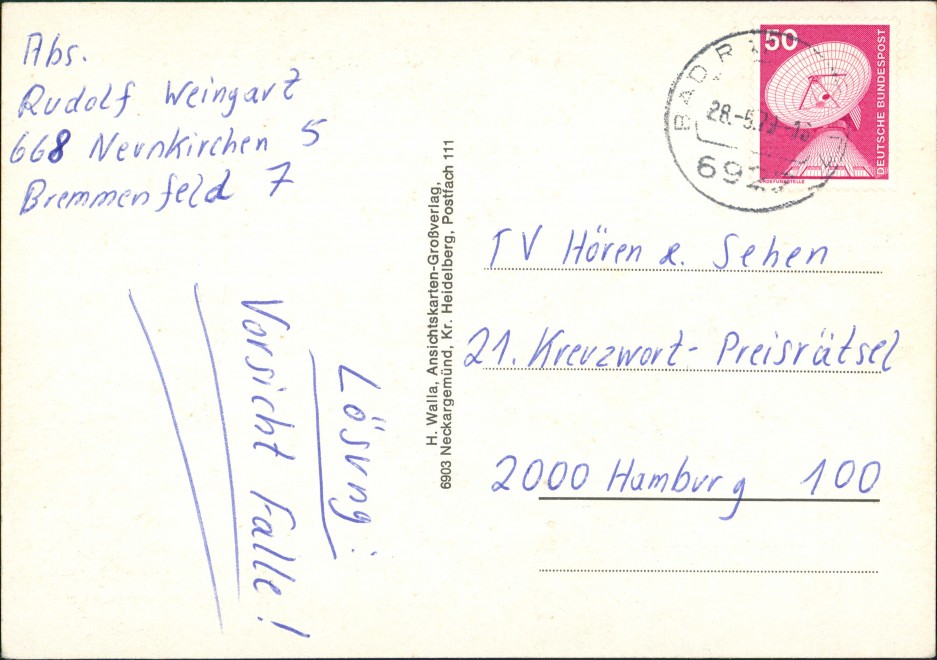 Abs.
Rudolf Weingart
668 Neunkirchen 5
Bremmenfeld 7
Lösung:
Vorsicht Falle!
H. Walla, Ansichtskarten-Großverlag,
6903 Neckargemünd, Kr. Heidelberg, Postfach 111
50
DEUTSCHE BUNDESPOST
BAD
28.-5.79
TV Hören u. Sehen
21. Kreuzwort-Preisrätsel
2000 Hamburg 100